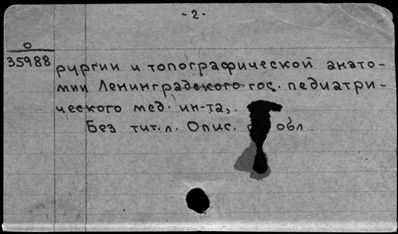 - 2 -
0
35988
рургии и топографической анато-
мии Ленинградского гос. педиатри-
ческого мед. ин-та,.
Без тит. л. Опис. обл.